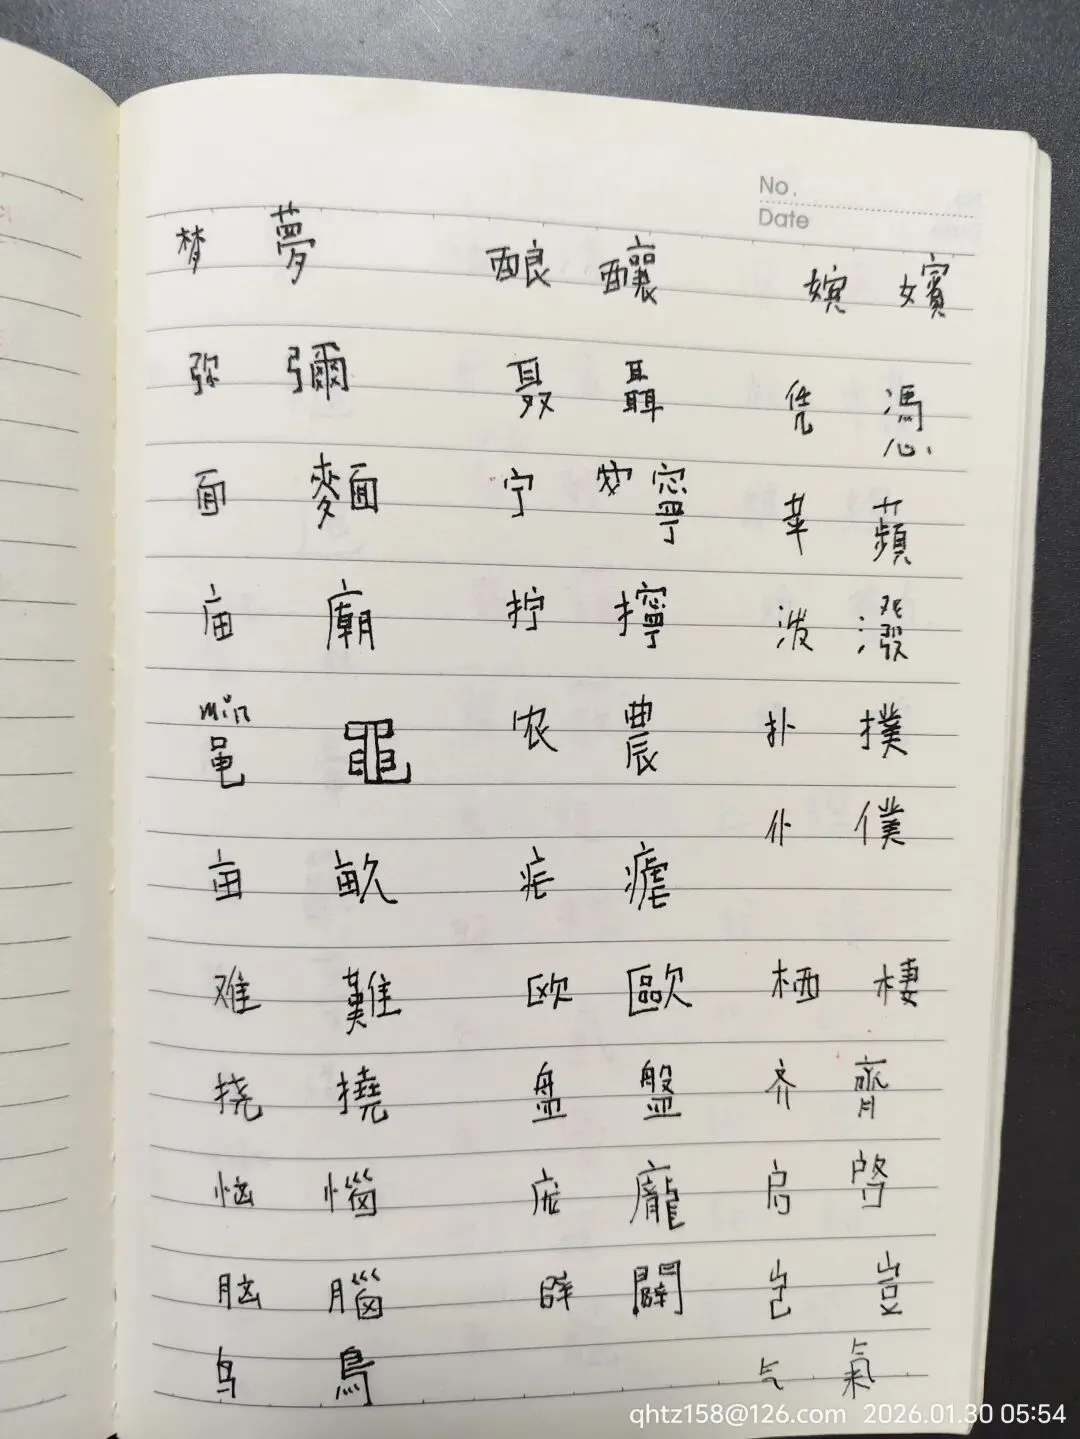 No.
Date
梦 夢 酿 釀 嫔 嬪
弥 彌 聂 聶 凭 憑
面 麵 宁 寧 苹 蘋
庙 廟 拧 擰 泼 潑
min
黾 黽 农 農 扑 撲
仆 僕
亩 畝 疟 瘧
难 難 欧 歐 栖 棲
挠 撓 盘 盤 齐 齊
恼 惱 庞 龐 启 啓
脑 腦 辟 闢 岂 豈
鸟 鳥 气 氣
qhtz158@126.com 2026.01.30 05:54